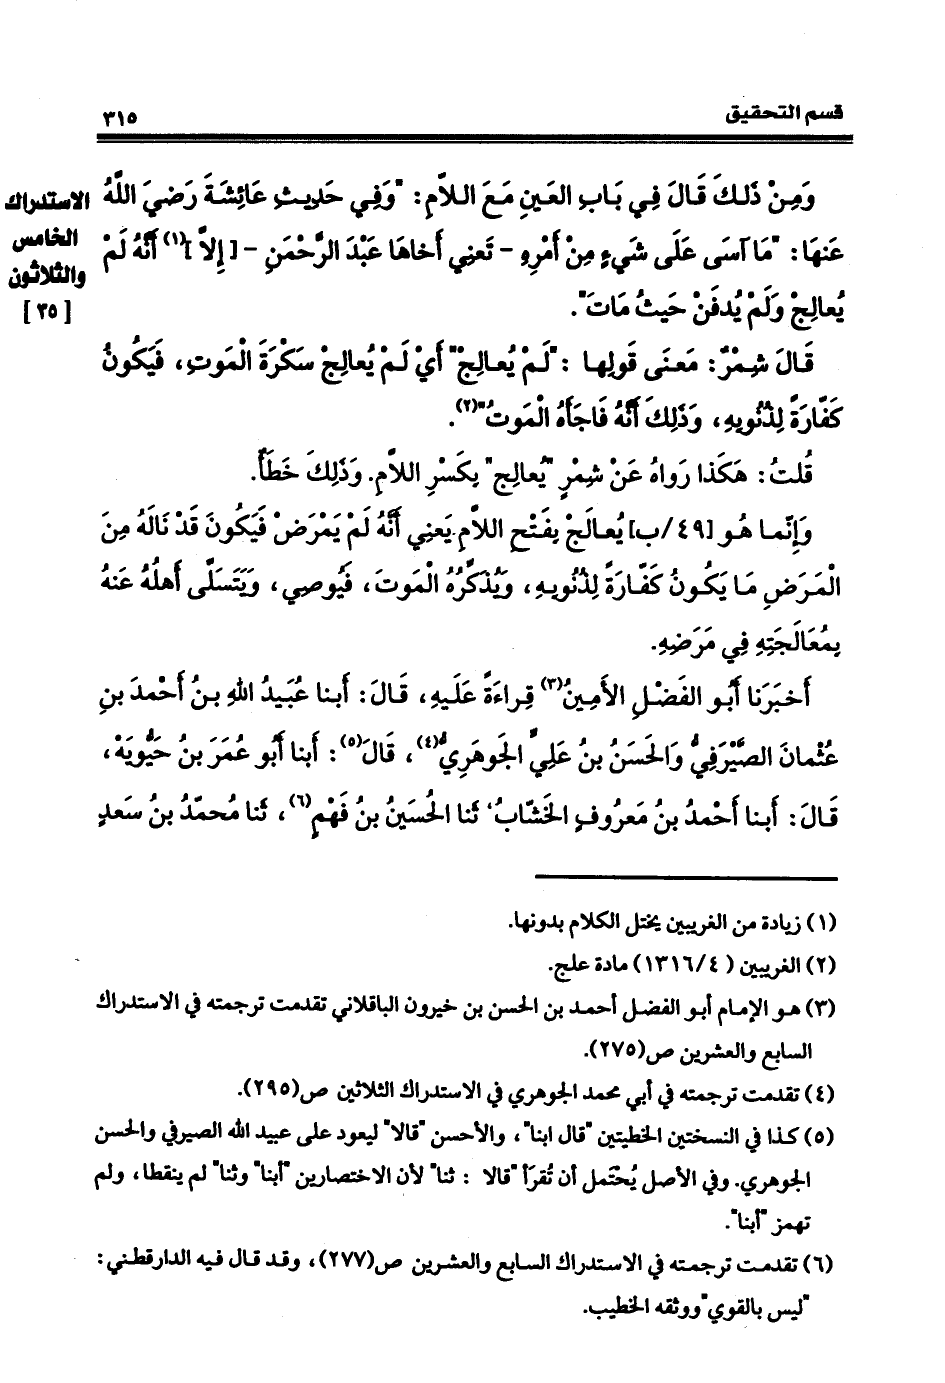 قسم التحقيق ٣١٥
وَمِنْ ذَلكَ قَالَ فِي بَابِ العَينِ مَعَ اللاَّمِ: "وَفِي حَديثِ عَائِشَةَ رَضِيَ اللَّهُ
عَنهَا: "مَا آسَى عَلَى شَيءٍ مِنْ أَمْرِهِ - تَعنِي أَخاهَا عَبْدَ الرَّحْمَنِ - [إِلاَّ](١) أَنَّهُ لَمْ
يُعالِجْ وَلَمْ يُدفَنْ حَيثُ مَاتَ".
الاستدراك
الخامس
والثلاثون
[٣٥]
قَالَ شِمْرٌ: مَعنَى قَولِها : "لَمْ يُعالِجْ" أَيْ لَمْ يُعالِجْ سَكْرَةَ الْمَوتِ، فَيَكُونُ
كَفَّارَةً لِذُنُوبِهِ، وَذَلِكَ أَنَّهُ فَاجَأَهُ الْمَوتُ"(٢).
قُلتُ: هَكَذا رَواهُ عَنْ شِمْرٍ "يُعالِج" بِكَسْرِ اللاَّمِ. وَذَلِكَ خَطَأٌ.
وَإِنَّما هُو [٤٩/ب] يُعالَجْ بِفَتْحِ اللاَّمِ. يَعنِي أَنَّهُ لَمْ يَمْرَضْ فَيَكُونَ قَدْ نَالَهُ مِنَ
الْمَرَضِ مَا يَكُونُ كَفَّارَةً لِذُنُوبِهِ، وَيُذَكِّرُهُ الْمَوتَ، فَيُوصِي، وَيَتَسَلَّى أَهلُهُ عَنهُ
بِمُعَالَجَتِهِ فِي مَرَضِهِ.
أَخبَرَنا أَبُو الفَضْلِ الأَمِينُ(٣) قِراءَةً عَلَيهِ، قَالَ: أَبنا عُبَيدُ اللهِ بنُ أَحْمدَ بنِ
عُثْمانَ الصَّيْرَفِيُّ وَالحَسَنُ بنُ عَلِيٍّ الجَوهَرِيُّ(٤)، قَالَ(٥): أَبنا أَبُو عُمَرَ بنُ حَيُّويَهْ،
قَالَ: أَبنا أَحْمدُ بنُ مَعرُوفٍ الخَشَّابُ، ثَنا الحُسَينُ بنُ فَهْمٍ(٦)، ثَنا مُحمَّدُ بنُ سَعدٍ
(١) زيادة من الغريبين يختل الكلام بدونها.
(٢) الغريبين (٤/١٣١٦) مادة علج.
(٣) هو الإمام أبو الفضل أحمد بن الحسن بن خيرون الباقلاني تقدمت ترجمته في الاستدراك
السابع والعشرين ص(٢٧٥).
(٤) تقدمت ترجمته في أبي محمد الجوهري في الاستدراك الثلاثين ص(٢٩٥).
(٥) كذا في النسختين الخطيتين "قال ابنا"، والأحسن "قالا" ليعود على عبيد الله الصيرفي والحسن
الجوهري. وفي الأصل يُحتمل أن تُقرأ "قالا : ثنا" لأن الاختصارين "أبنا" وثنا" لم ينقطا، ولم
تهمز "أبنا".
(٦) تقدمت ترجمته في الاستدراك السابع والعشرين ص(٢٧٧)، وقد قال فيه الدارقطني:
"ليس بالقوي" ووثقه الخطيب.